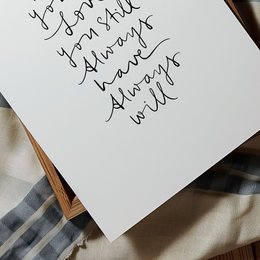 you
Love
you still
Always
have
Always
will